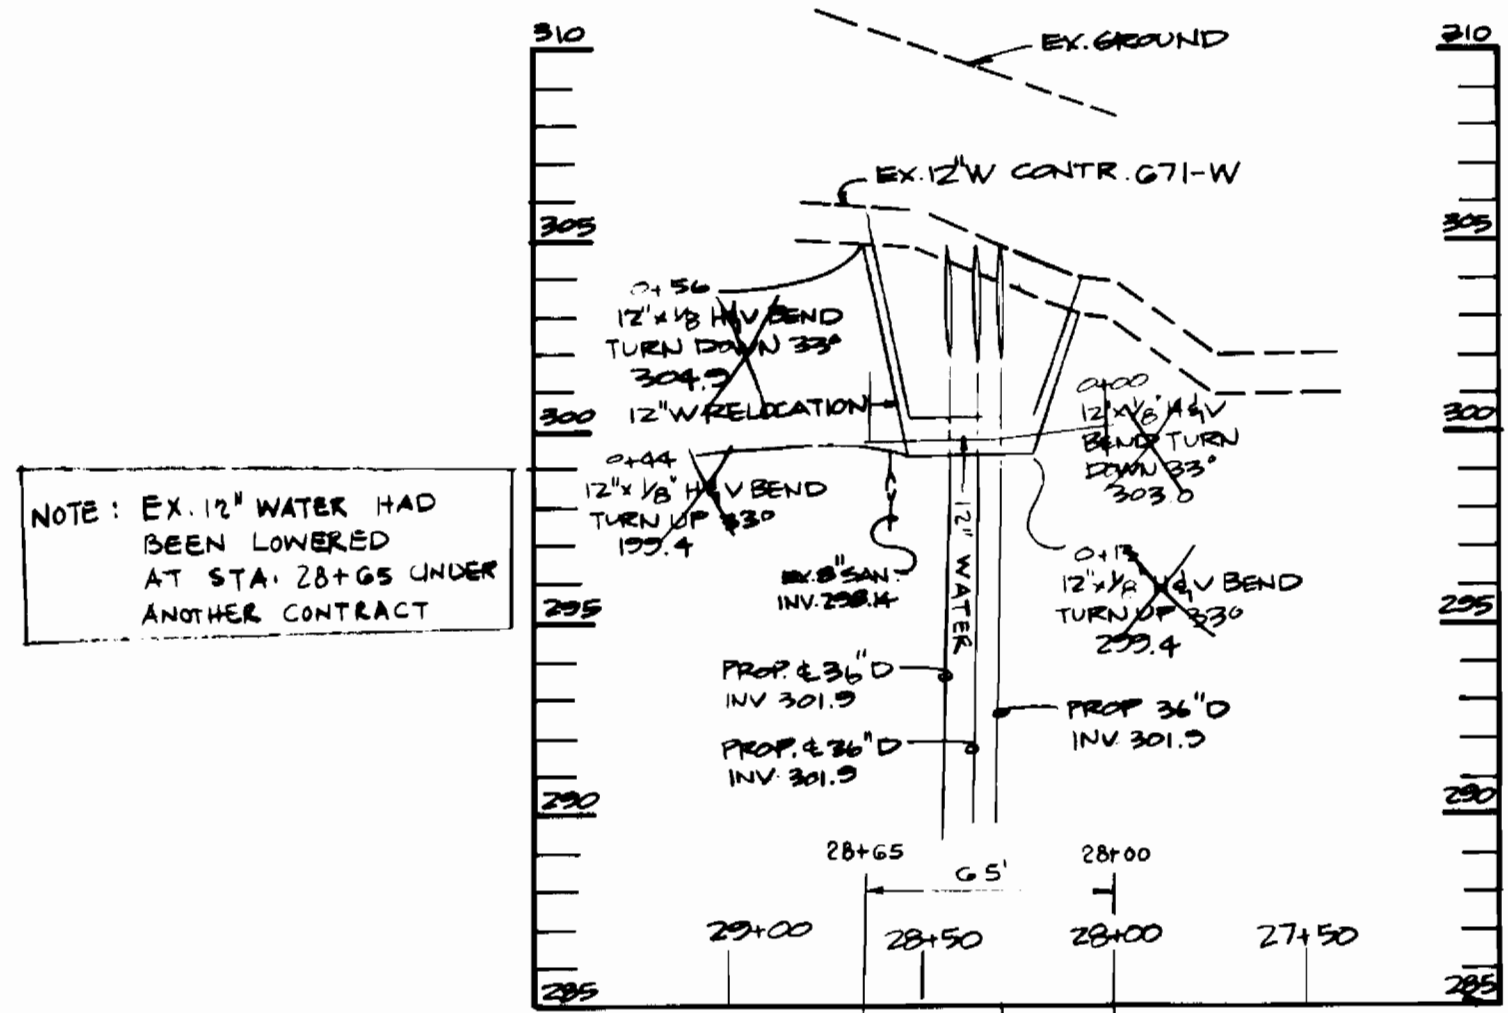 310
310
EX. GROUND
EX. 12"W CONTR. 671-W
305
305
0+56
12" x 1/8 H&V BEND
TURN DOWN 33°
304.9
12"W RELOCATION
300
300
0+00
12" x 1/8" H&V
BEND TURN
DOWN 33°
303.0
0+44
12" x 1/8" H&V BEND
TURN UP 33°
199.4
NOTE: EX. 12" WATER HAD
BEEN LOWERED
AT STA. 28+65 UNDER
ANOTHER CONTRACT
EX. 8" SAN.
INV. 298.14
12" WATER
12" x 1/8 H&V BEND
TURN UP 33°
299.4
295
295
PROP. ℄ 36" D
INV 301.9
PROP 36" D
INV. 301.9
PROP. ℄ 36" D
INV. 301.9
290
290
28+65
28+00
65'
29+00
28+50
28+00
27+50
285
285